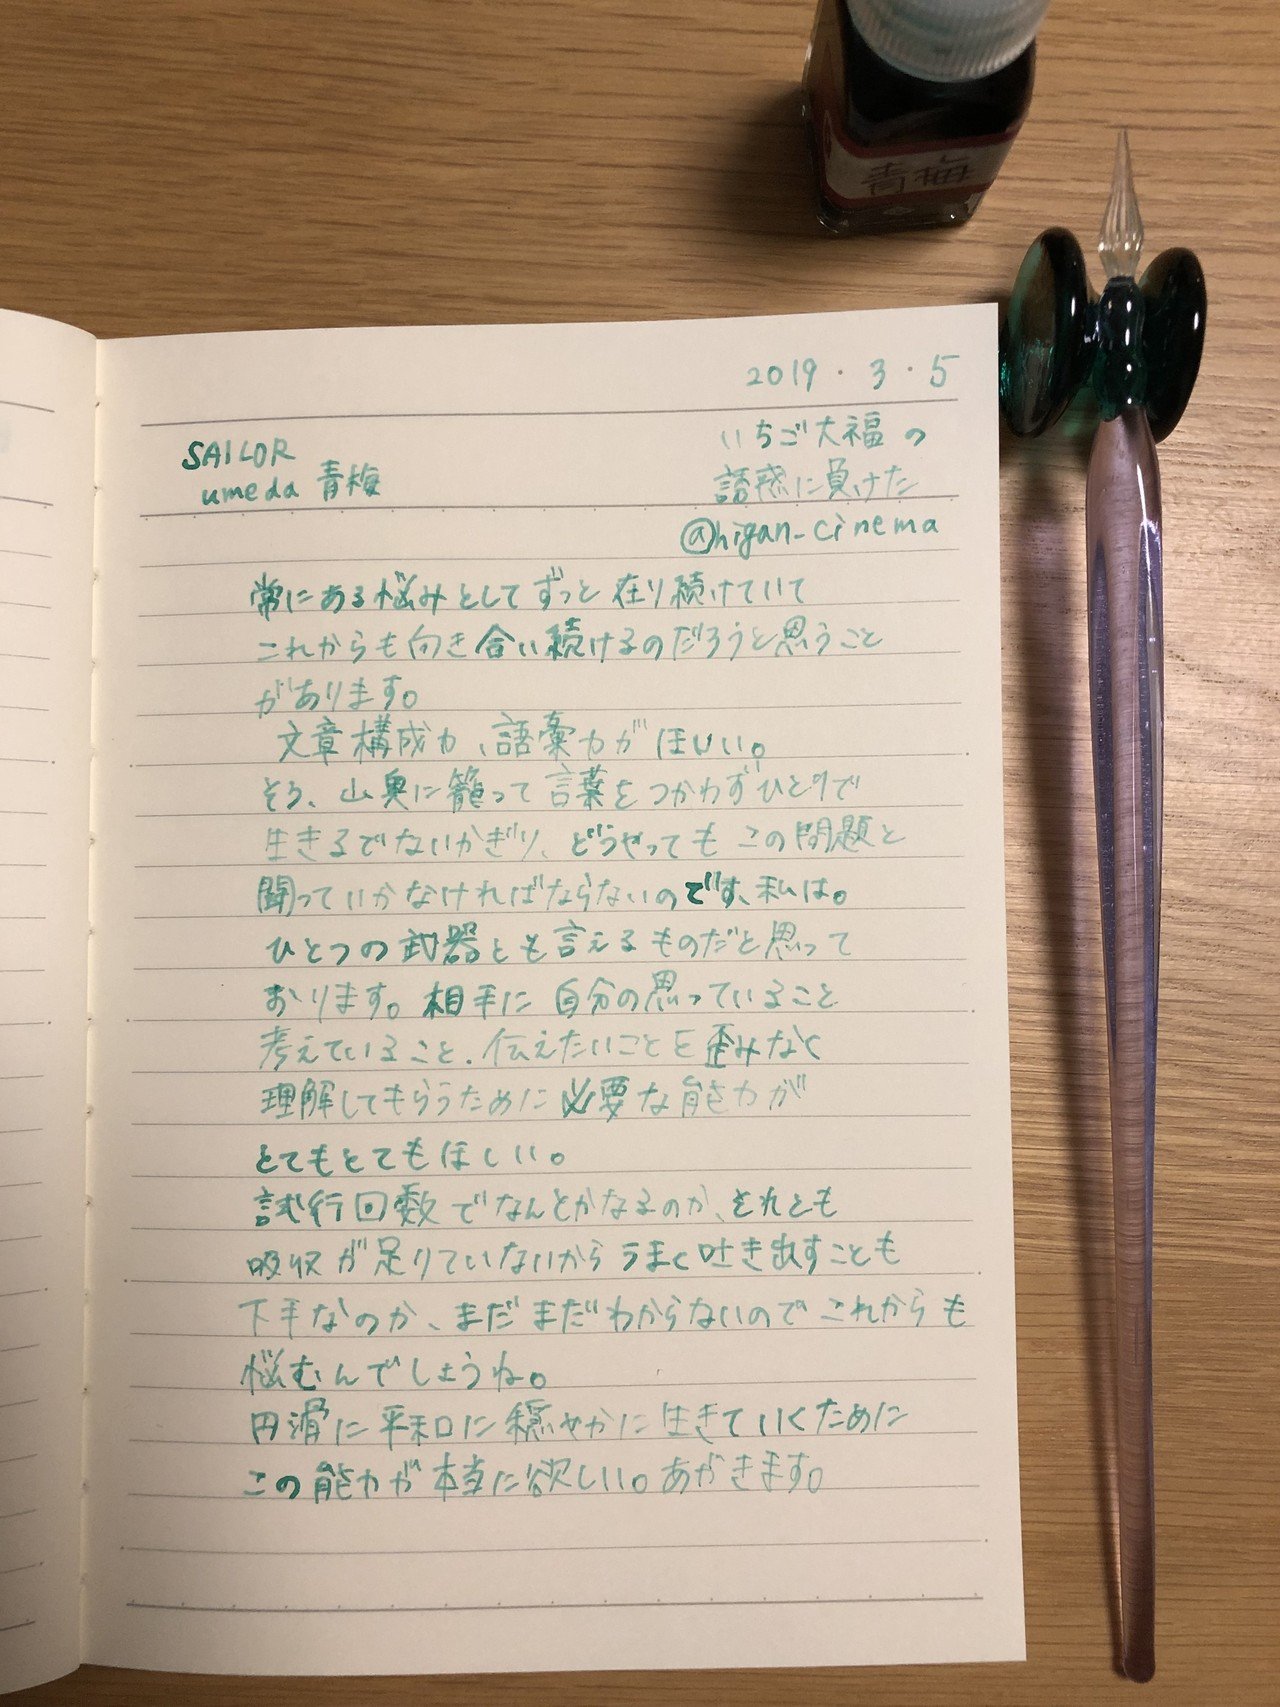 青梅
2019・3・5
SAILOR
umeda 青梅
いちご大福の
誘惑に負けた
@higan_cinema
常にある悩みとしてずっと在り続けていて
これからも向き合い続けるのだろうと思うこと
があります。
文章構成力、語彙力がほしい。
そう、山奥に籠って言葉をつかわずひとりで
生きるでないかぎり、どうやってもこの問題と
闘っていかなければならないのです、私は。
ひとつの武器とも言えるものだと思って
おります。相手に自分の思っていること
考えていること、伝えたいことを歪みなく
理解してもらうために必要な能力が
とてもとてもほしい。
試行回数でなんとかなるのか、それとも
吸収が足りていないからうまく吐き出すことも
下手なのか、まだまだわからないのでこれからも
悩むんでしょうね。
円滑に平和に穏やかに生きていくために
この能力が本当に欲しい。あがきます。